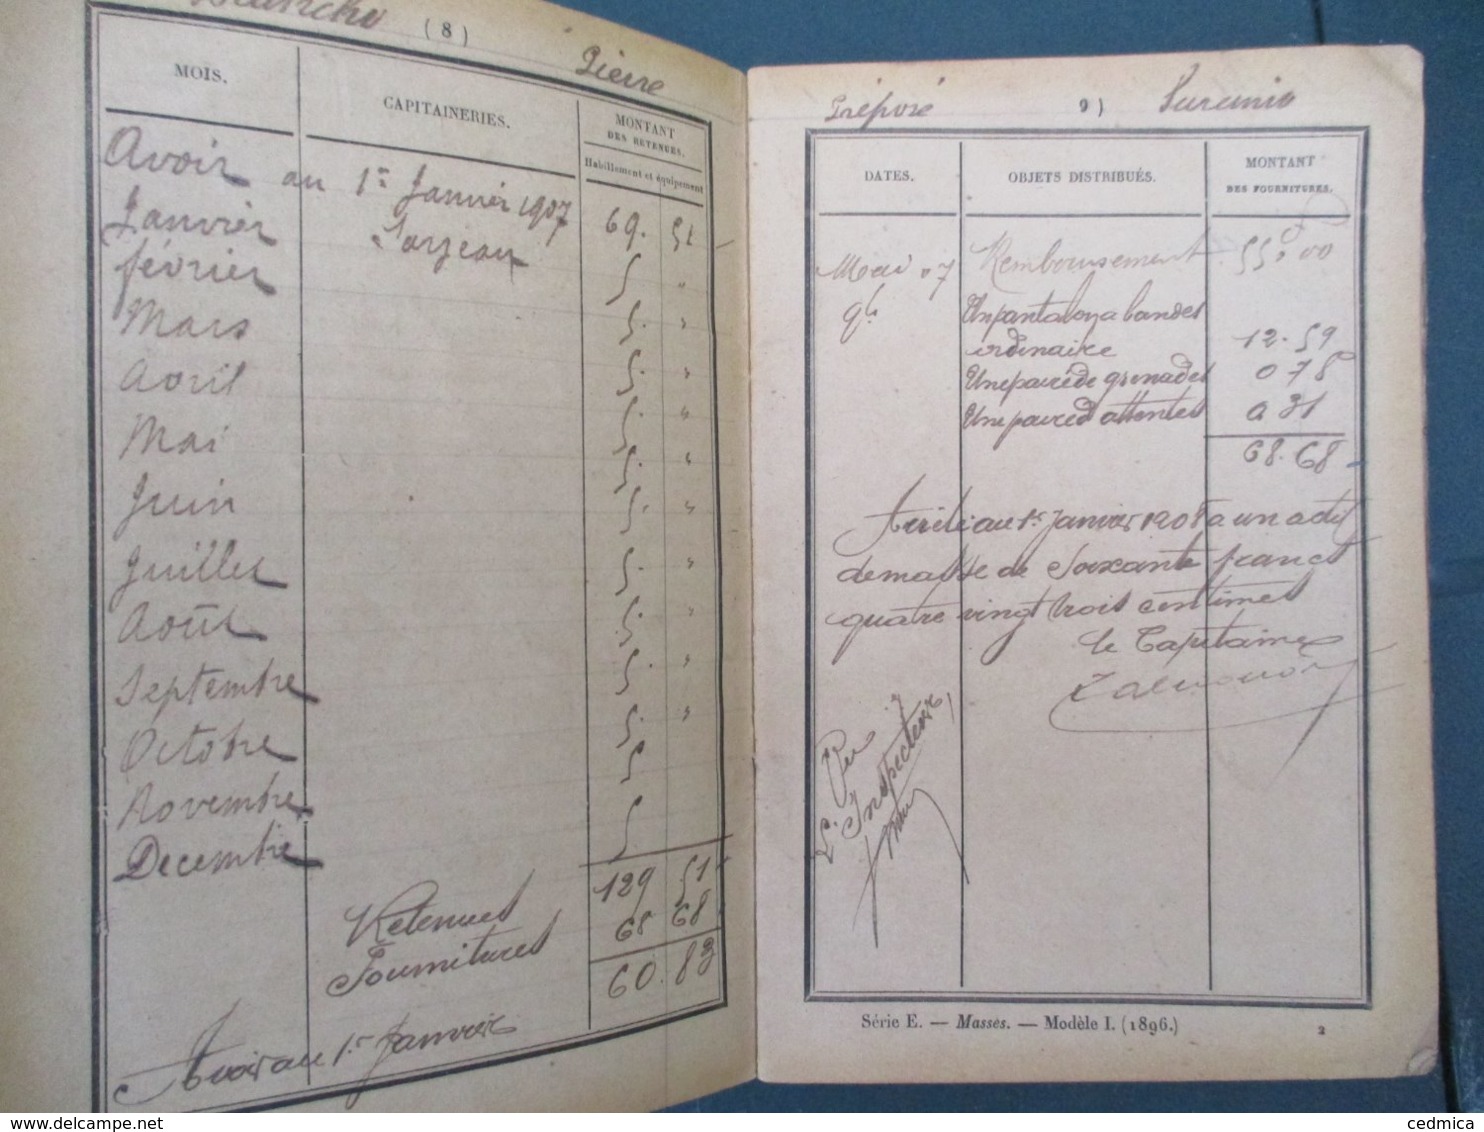 ( 8 )
Pierre
MOIS.
CAPITAINERIES.
MONTANT
DES RETENUES.
Habillement et équipement
Avoir au 1er Janvier 1907 69. 51
Janvier Sarzeau 5 "
février 5 "
Mars 5 "
Avril 5 "
Mai 5 "
Juin 5 "
Juillet 5 "
Août 5 "
Septembre 5 "
Octobre 5 "
Novembre 5
Decembre 5
Retenues 129 51
Fournitures 68 68
Avoir au 1er Janvier 60. 83
Préposé
9 )
DATES.
OBJETS DISTRIBUÉS.
MONTANT
DES FOURNITURES.
Mai 07 Remboursement 55. 00
Un pantalon a bandes
ordinaire 12. 59
Une paire de grenades 0 78
Une paire d'attentes 0 31
68. 68
Arrêté au 1er Janvier 1908 a un actif
de masse de Soixante francs
quatre vingt trois centimes
le Capitaine
Vu
L'Inspecteur,
Série E. — Masses. — Modèle I. (1896.)
2
cedmica